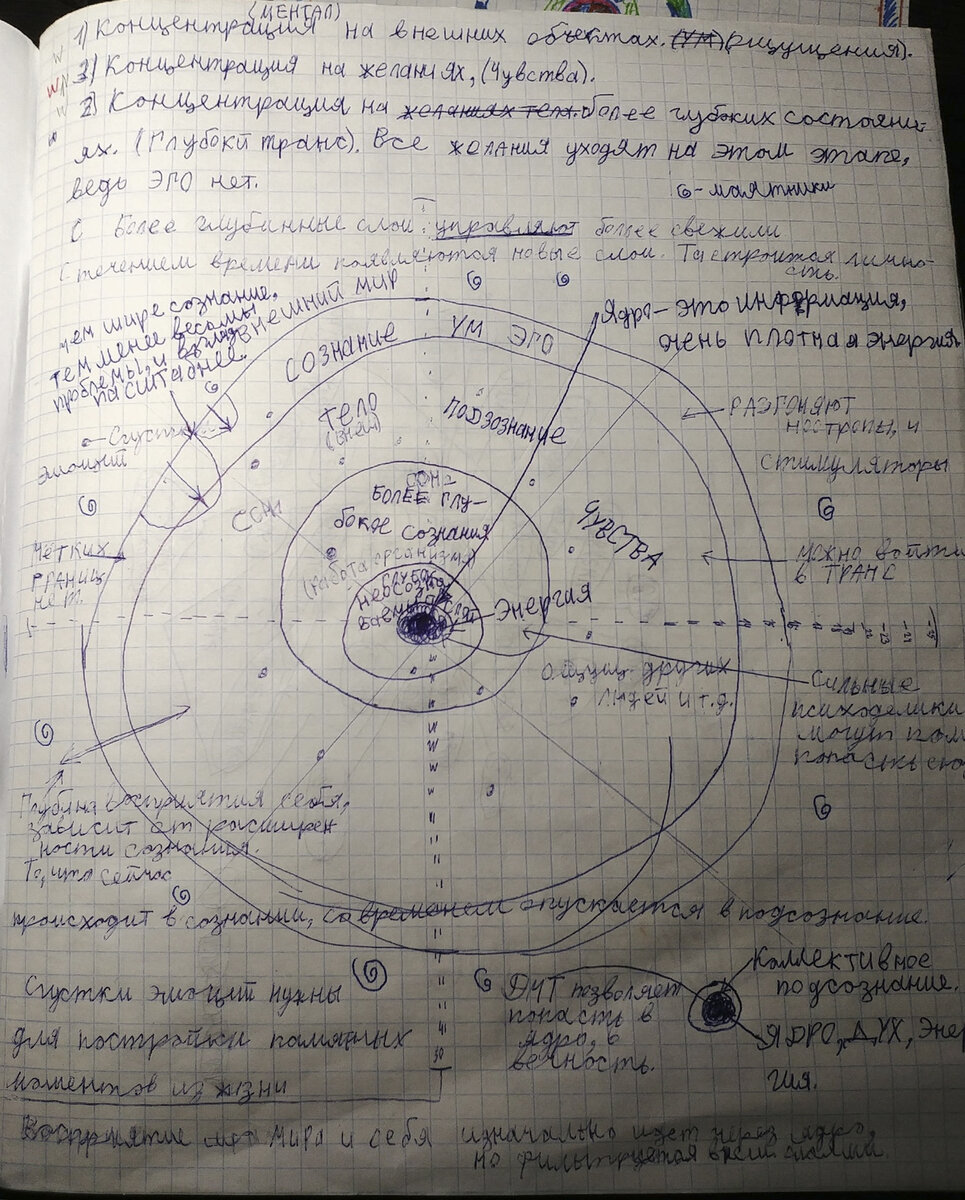 (МЕНТАЛ)
1) Концентрация на внешних объектах. (УМ) (ощущения).
3) Концентрация на желаниях, (Чувства).
2) Концентрация на желаниях тела. более глубоких состояни-
ях. (Глубокй транс). Все желания уходят на этом этапе,
ведь ЭГО нет.
- маятники
Более глубинные слои управляют более свежими
С течением времени появляются новые слои. Так строится лично-
сть.
чем шире сознание,
тем менее весомы
проблемы, и взгляд
масштабнее.
ВНЕШНИЙ МИР
Ядро - это информация,
очень плотная энергия
СОЗНАНИЕ
УМ ЭГО
ТЕЛО
ПОДЗОЗНАНИЕ
РАЗГОНЯЮТ
ноотропы, и
стимуляторы
- Сгустки
эмоций
СОН1
СОН2
БОЛЕЕ ГЛУ-
бокое сознания
(работа организма)
ЧУВСТВА
Чётких
границ
нет.
можно войти
в ТРАНС
ГЛУБОК
неосозна
ваемые слои
ЭНЕРГИЯ
ощущ. других
людей и т.д.
Сильные
психоделики
могут пом
попасть сюд
Глубина восприятия себя,
зависит от расширен
ности сознания.
То, что сейчас
происходит в сознании, со временем опускается в подсознание.
Сгустки эмоций нужны
для постройки памятных
моментов из жизни
30
ДМТ позволяет
попасть в
ядро, в
вечность.
Коллективное
подсознание.
ЯДРО, ДУХ, Энер
гия.
Восприятие мира и себя изначально идет через ядро,
но фильтруется всеми слоями.